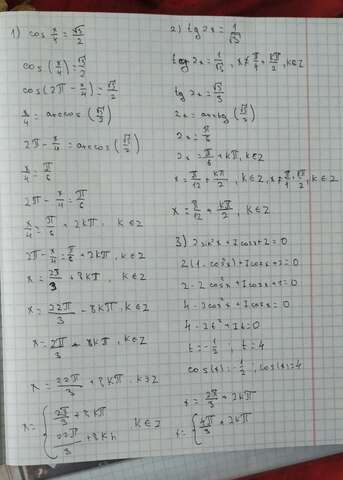 1) cos x/4 = √3/2
cos (x/4) = √3/2
cos (2π - x/4) = √3/2
x/4 = arccos (√3/2)
2π - x/4 = arccos (√3/2)
x/4 = π/6
2π - x/4 = π/6
x/4 = π/6 + 2kπ, k∈Z
2π - x/4 = π/6 + 2kπ, k∈Z
x = 2π/3 + 8kπ, k∈Z
x = 22π/3 - 8kπ, k∈Z
x = 2π/3 + 8kπ, k∈Z
x = 22π/3 + 8kπ, k∈Z
x = { 2π/3 + 8kπ
22π/3 + 8kπ k∈Z
2) tg 2x = 1/√3
tg 2x = 1/√3, x ≠ π/4 + kπ/2, k∈Z
tg 2x = √3/3
2x = arctg (√3/3)
2x = π/6
2x = π/6 + kπ, k∈Z
x = π/12 + kπ/2, k∈Z, x ≠ π/4 + kπ/2, k∈Z
x = π/12 + kπ/2, k∈Z
3) 2sin²x + 7cosx + 2 = 0
2(1 - cos²x) + 7cosx + 2 = 0
2 - 2cos²x + 7cosx + 2 = 0
4 - 2cos²x + 7cosx = 0
4 - 2t² + 7t = 0
t = -1/2 ; t = 4
cos(x) = -1/2 ; cos(x) = 4
x = 2π/3 + 2kπ
x = { 4π/3 + 2kπ